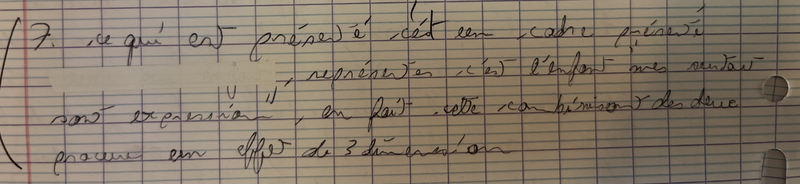 7. ce qui est présenté c'est un cadre présenté
, représenter c'est l'enfant mes
sont expression", en fait cette combinison des deux
procure un effet de 3 dimension